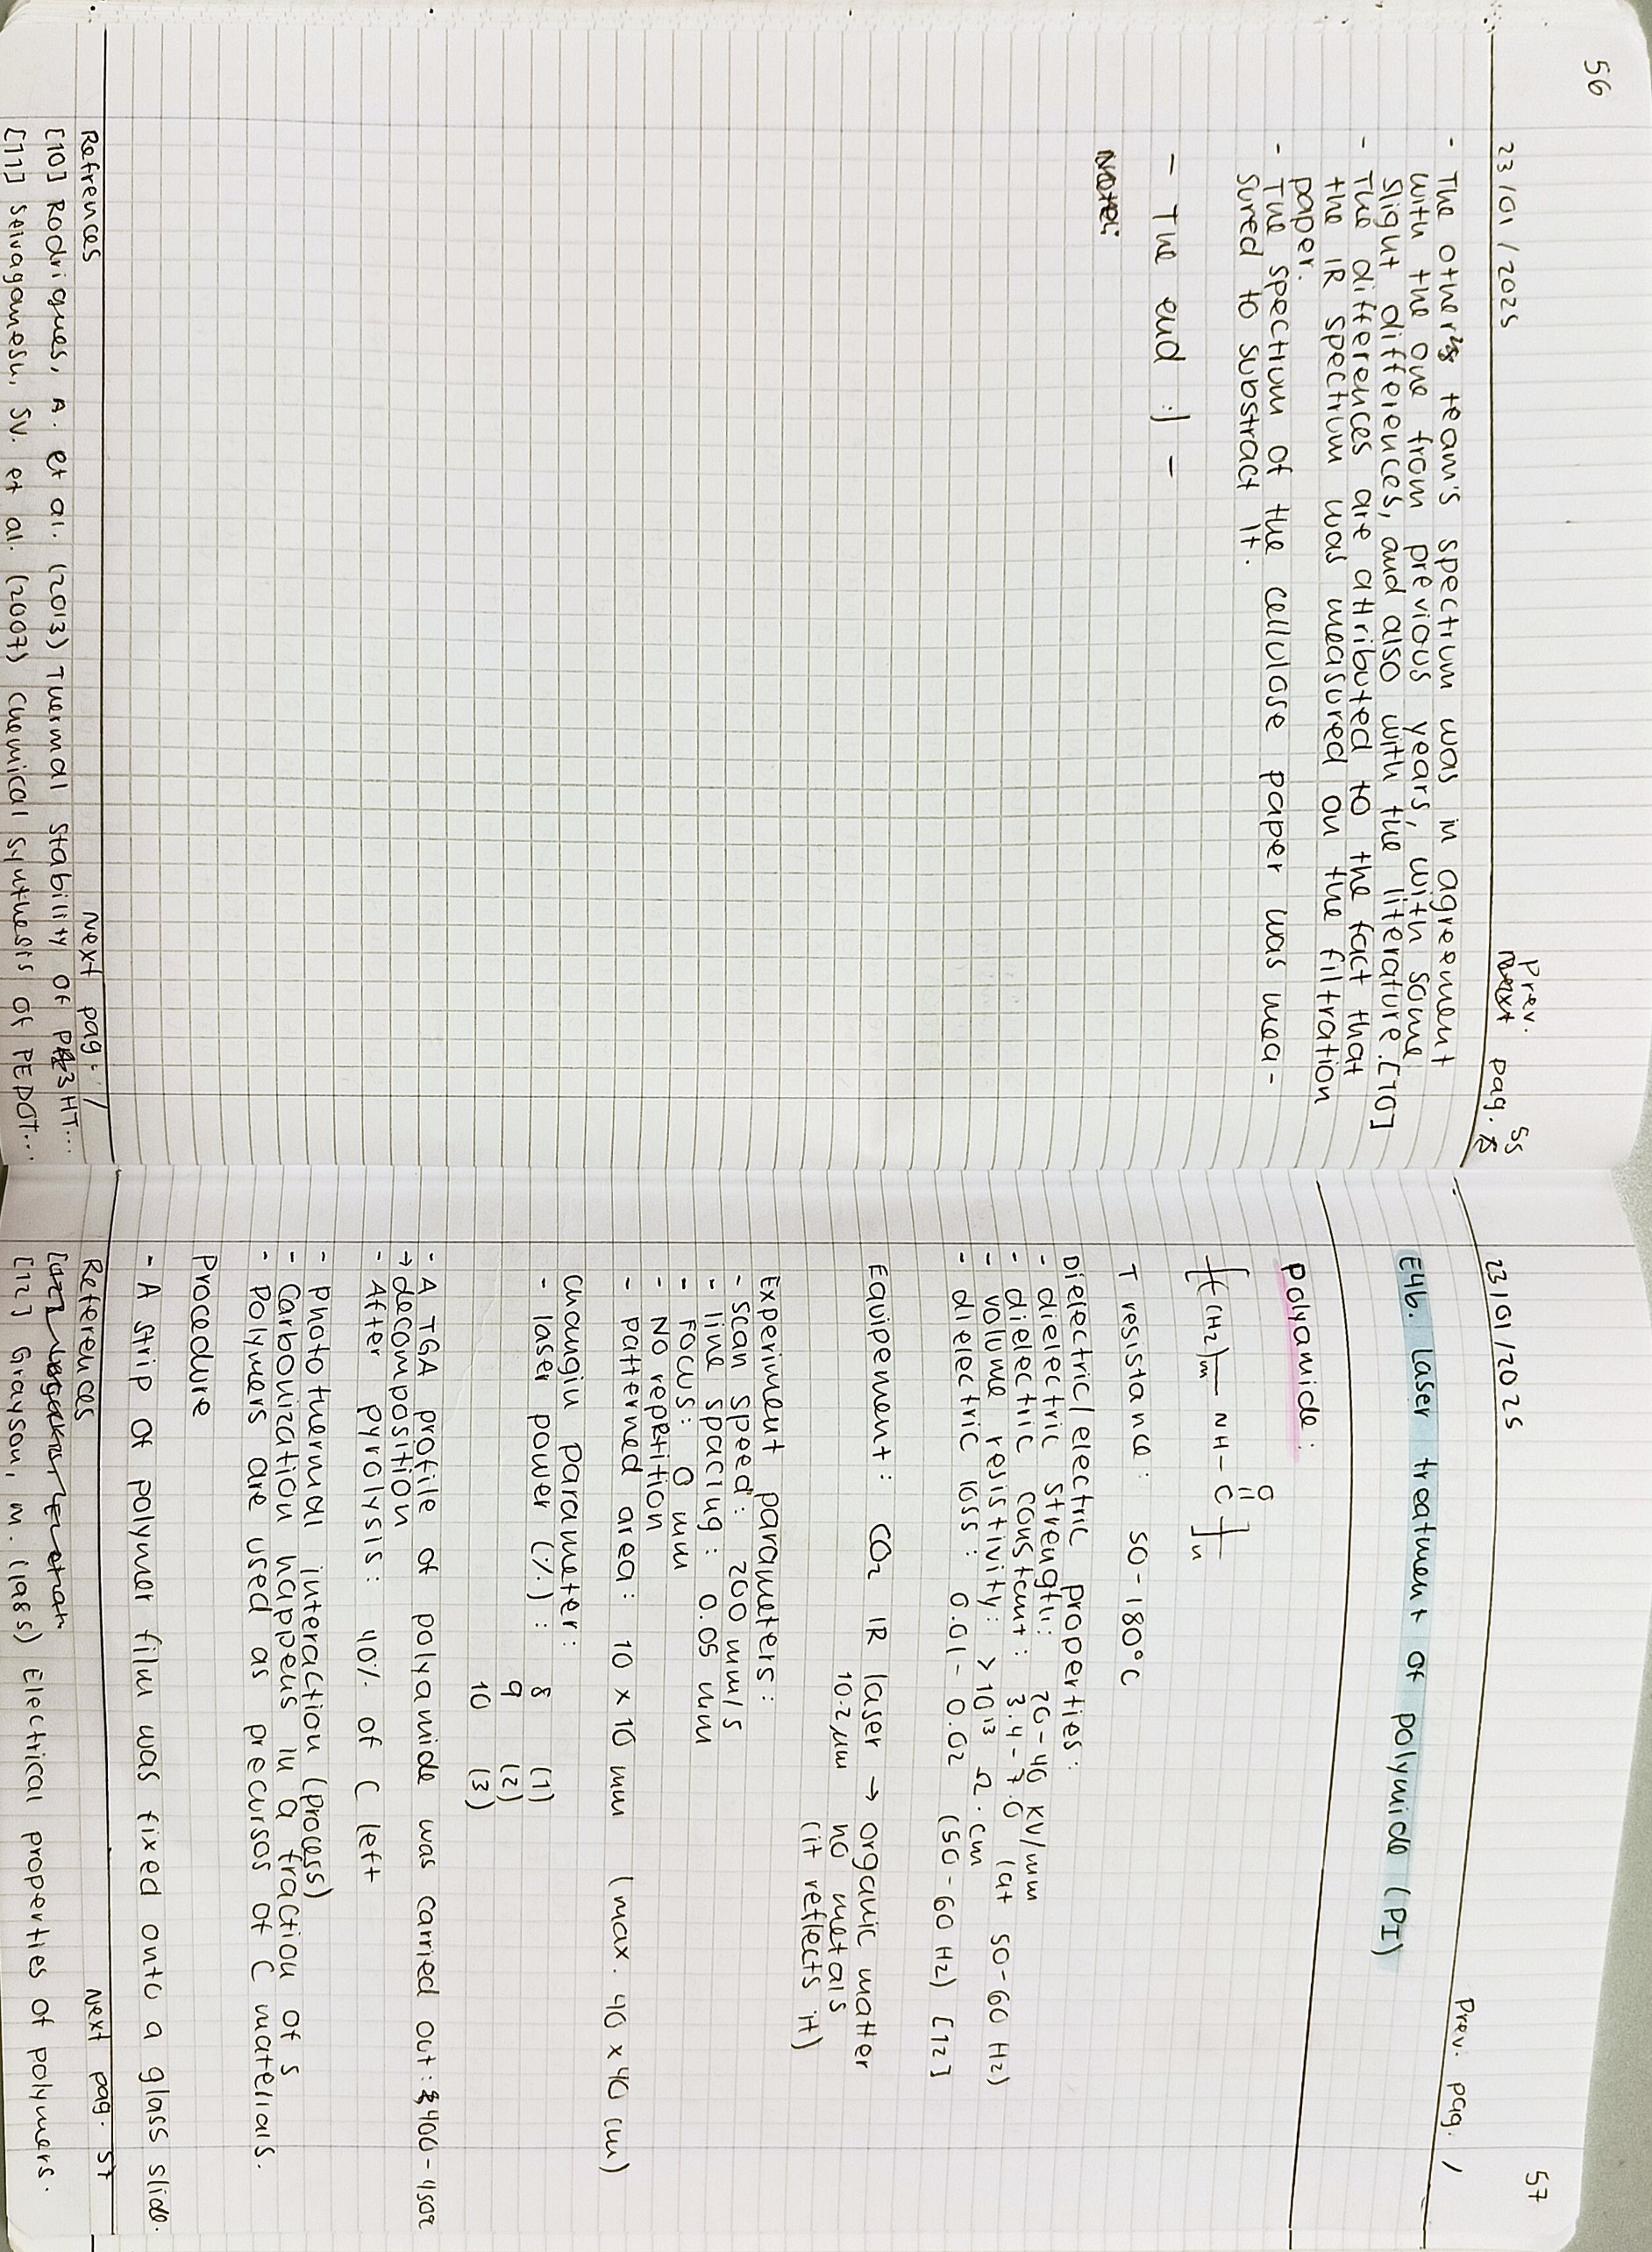 56
23/01/2025
Prev. pag. 55
- The other team's spectrum was in agreement
with the one from previous years, with some
slight differences, and also with the literature.[10]
- The differences are attributed to the fact that
the IR spectrum was measured on the filtration
paper.
- The spectrum of the cellulose paper was mea-
sured to substract it.
- The end :) -
Note:
Refrences
Next pag. /
[10] Rodrigues, A. et al. (2013) Thermal stability of P3HT...
[11] Selvaganesh, SV. et al. (2007) Chemical synthesis of PEDOT...
57
23/01/2025
Prev. pag. /
E4b. Laser treatment of polyimide (PI)
Polyamide:
O
[(CH2)m — NH - C]n
T resistance: 50-180°C
Dielectric/electric properties:
- dielectric strength: 20-40 kV/mm
- dielectric constant: 3.4-7.0 (at 50-60 Hz)
- volume resistivity: >10¹³ Ω·cm
- dielectric loss: 0.01-0.02 (50-60 Hz) [12]
Equipement: CO2 IR laser → organic matter
10.2 μm no metals
(it reflects it)
Experiment parameters:
- scan speed: 200 mm/s
- line spacing: 0.05 mm
- Focus: 0 mm
- No reprtition
- patterned area: 10 x 10 mm (max. 40 x 40 cm)
Changin parameter:
- laser power (%): 8 (1)
9 (2)
10 (3)
- A TGA profile of polyamide was carried out: 400-450°C
→ decomposition
- After pyrolysis: 40% of C left
- Photothermal interaction (process)
- Carbonization happens in a fraction of s
- Polymers are used as precursos of C materials.
Procedure
- A strip of polymer film was fixed onto a glass slide.
References
Next pag. 57
[12] Grayson, M. Electrical properties of polymers.